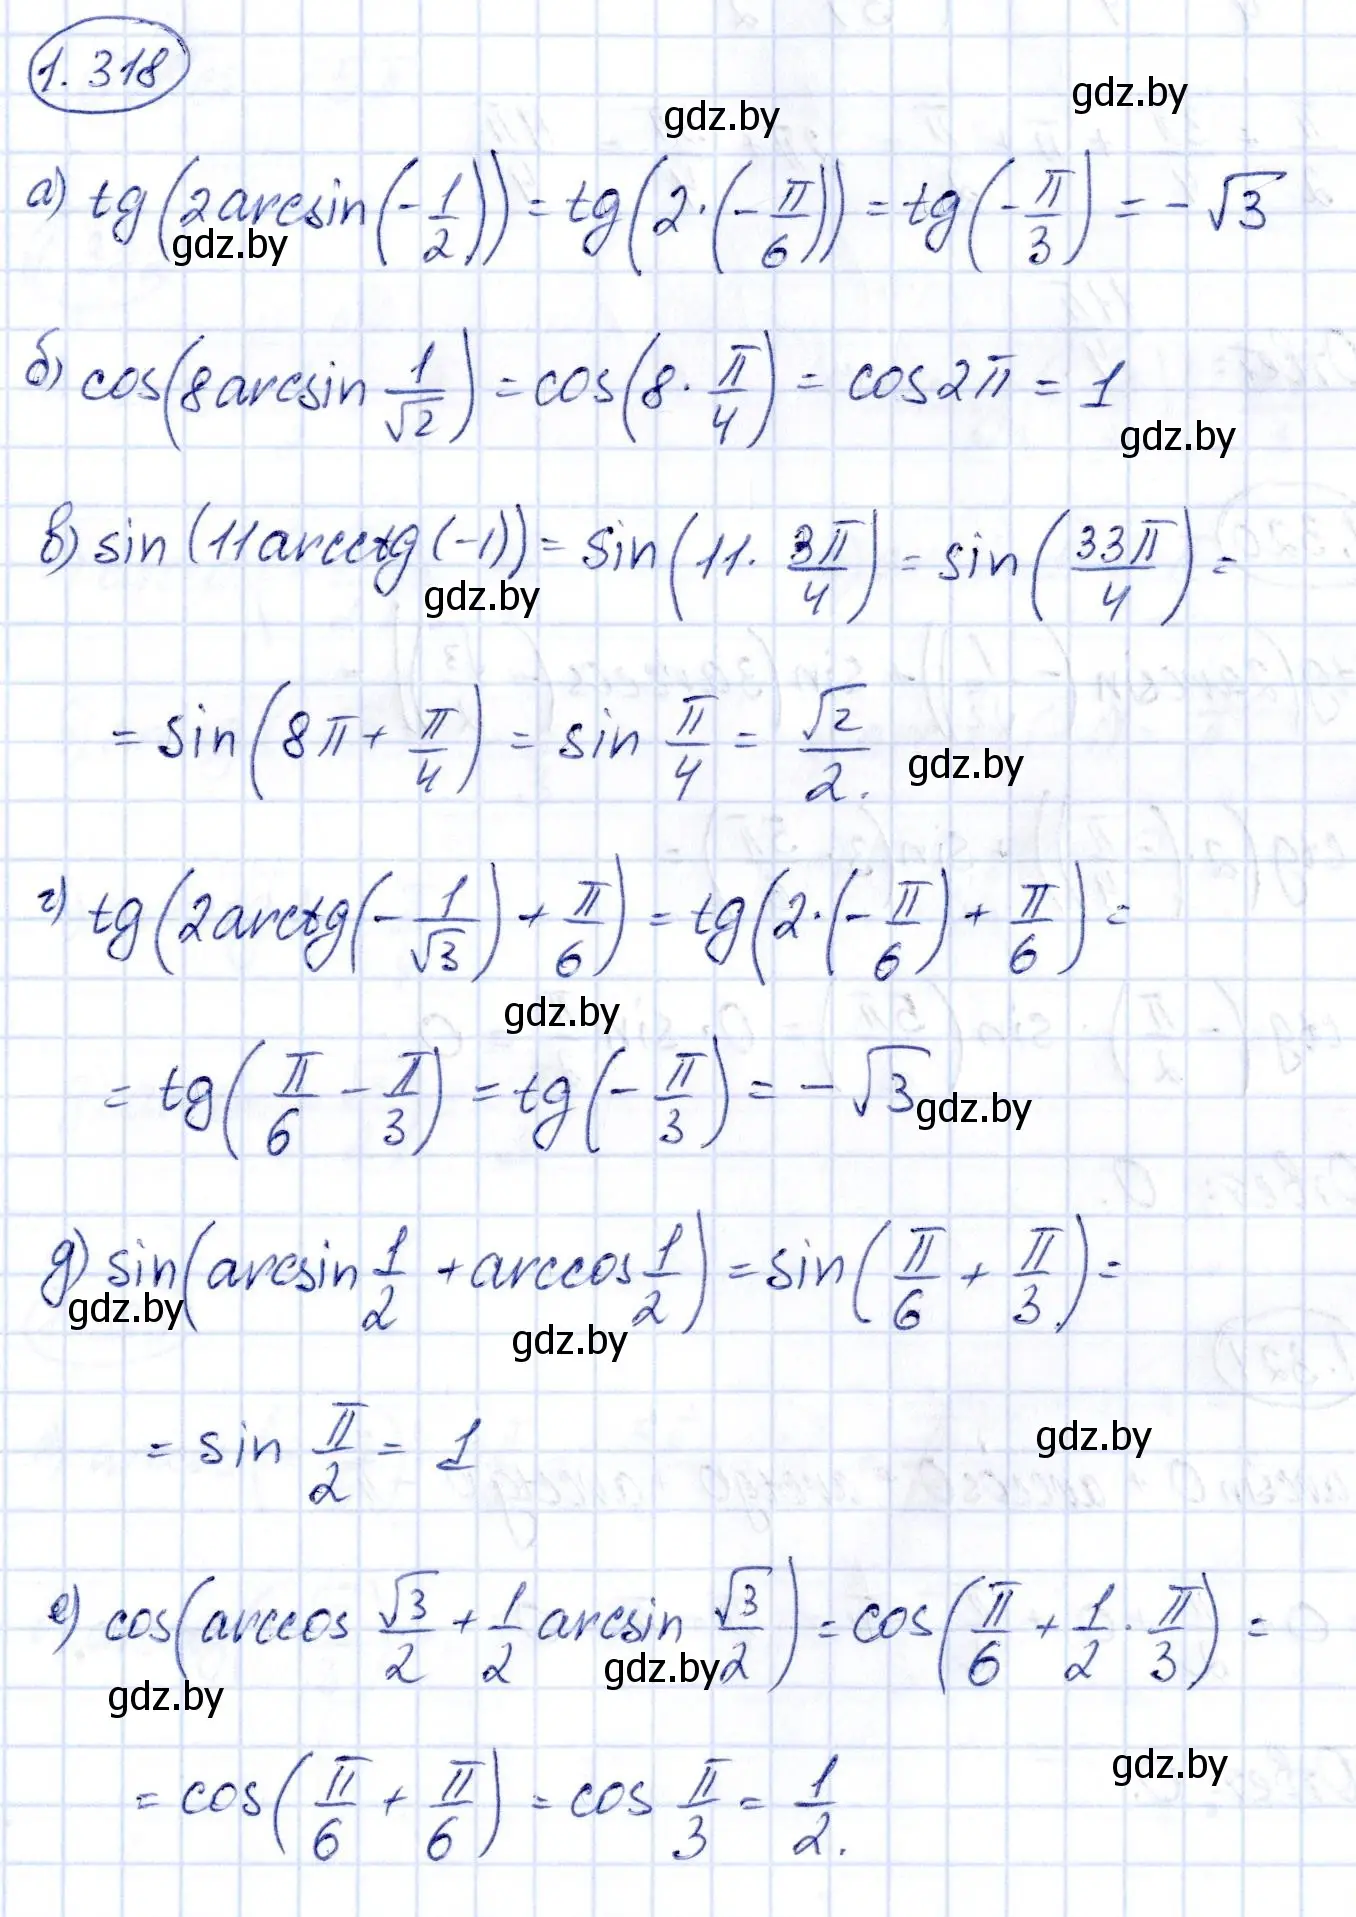 1.318
gdz.by
gdz.by
а) tg(2arcsin(-1/2)) = tg(2·(-π/6)) = tg(-π/3) = -√3
gdz.by
б) cos(8arcsin 1/√2) = cos(8·π/4) = cos2π = 1
gdz.by
в) sin(11arcctg(-1)) = sin(11·3π/4) = sin(33π/4) =
gdz.by
= sin(8π + π/4) = sin π/4 = √2/2.
gdz.by
г) tg(2arctg(-1/√3) + π/6) = tg(2·(-π/6) + π/6) =
gdz.by
= tg(π/6 - π/3) = tg(-π/3) = -√3
gdz.by
д) sin(arcsin 1/2 + arccos 1/2) = sin(π/6 + π/3) =
gdz.by
gdz.by
= sin π/2 = 1
gdz.by
е) cos(arccos √3/2 + 1/2 arcsin √3/2) = cos(π/6 + 1/2·π/3) =
gdz.by
gdz.by
= cos(π/6 + π/6) = cos π/3 = 1/2.
gdz.by